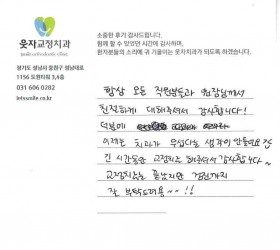 소중한 후기 감사드립니다.
함께 할 수 있었던 시간에 감사하며,
환자분들의 소리에 귀 기울이는 웃자교정치과가 되도록 하겠습니다.
웃자교정치과
경기도 성남시 중원구 성남대로
1156 도현타워 3,4층
031 606 0282
letssmile.co.kr
항상 모든 직원분들과 원장님께서
친절하게 대해주셔서 감사합니다!
덕분에
이제는 치과가 무섭다는 생각이 안들어요
긴 시간동안 교정치료 해주셔서 감사합니다~
교정치료는 끝났지만 검진까지
잘 부탁드려용~~!!